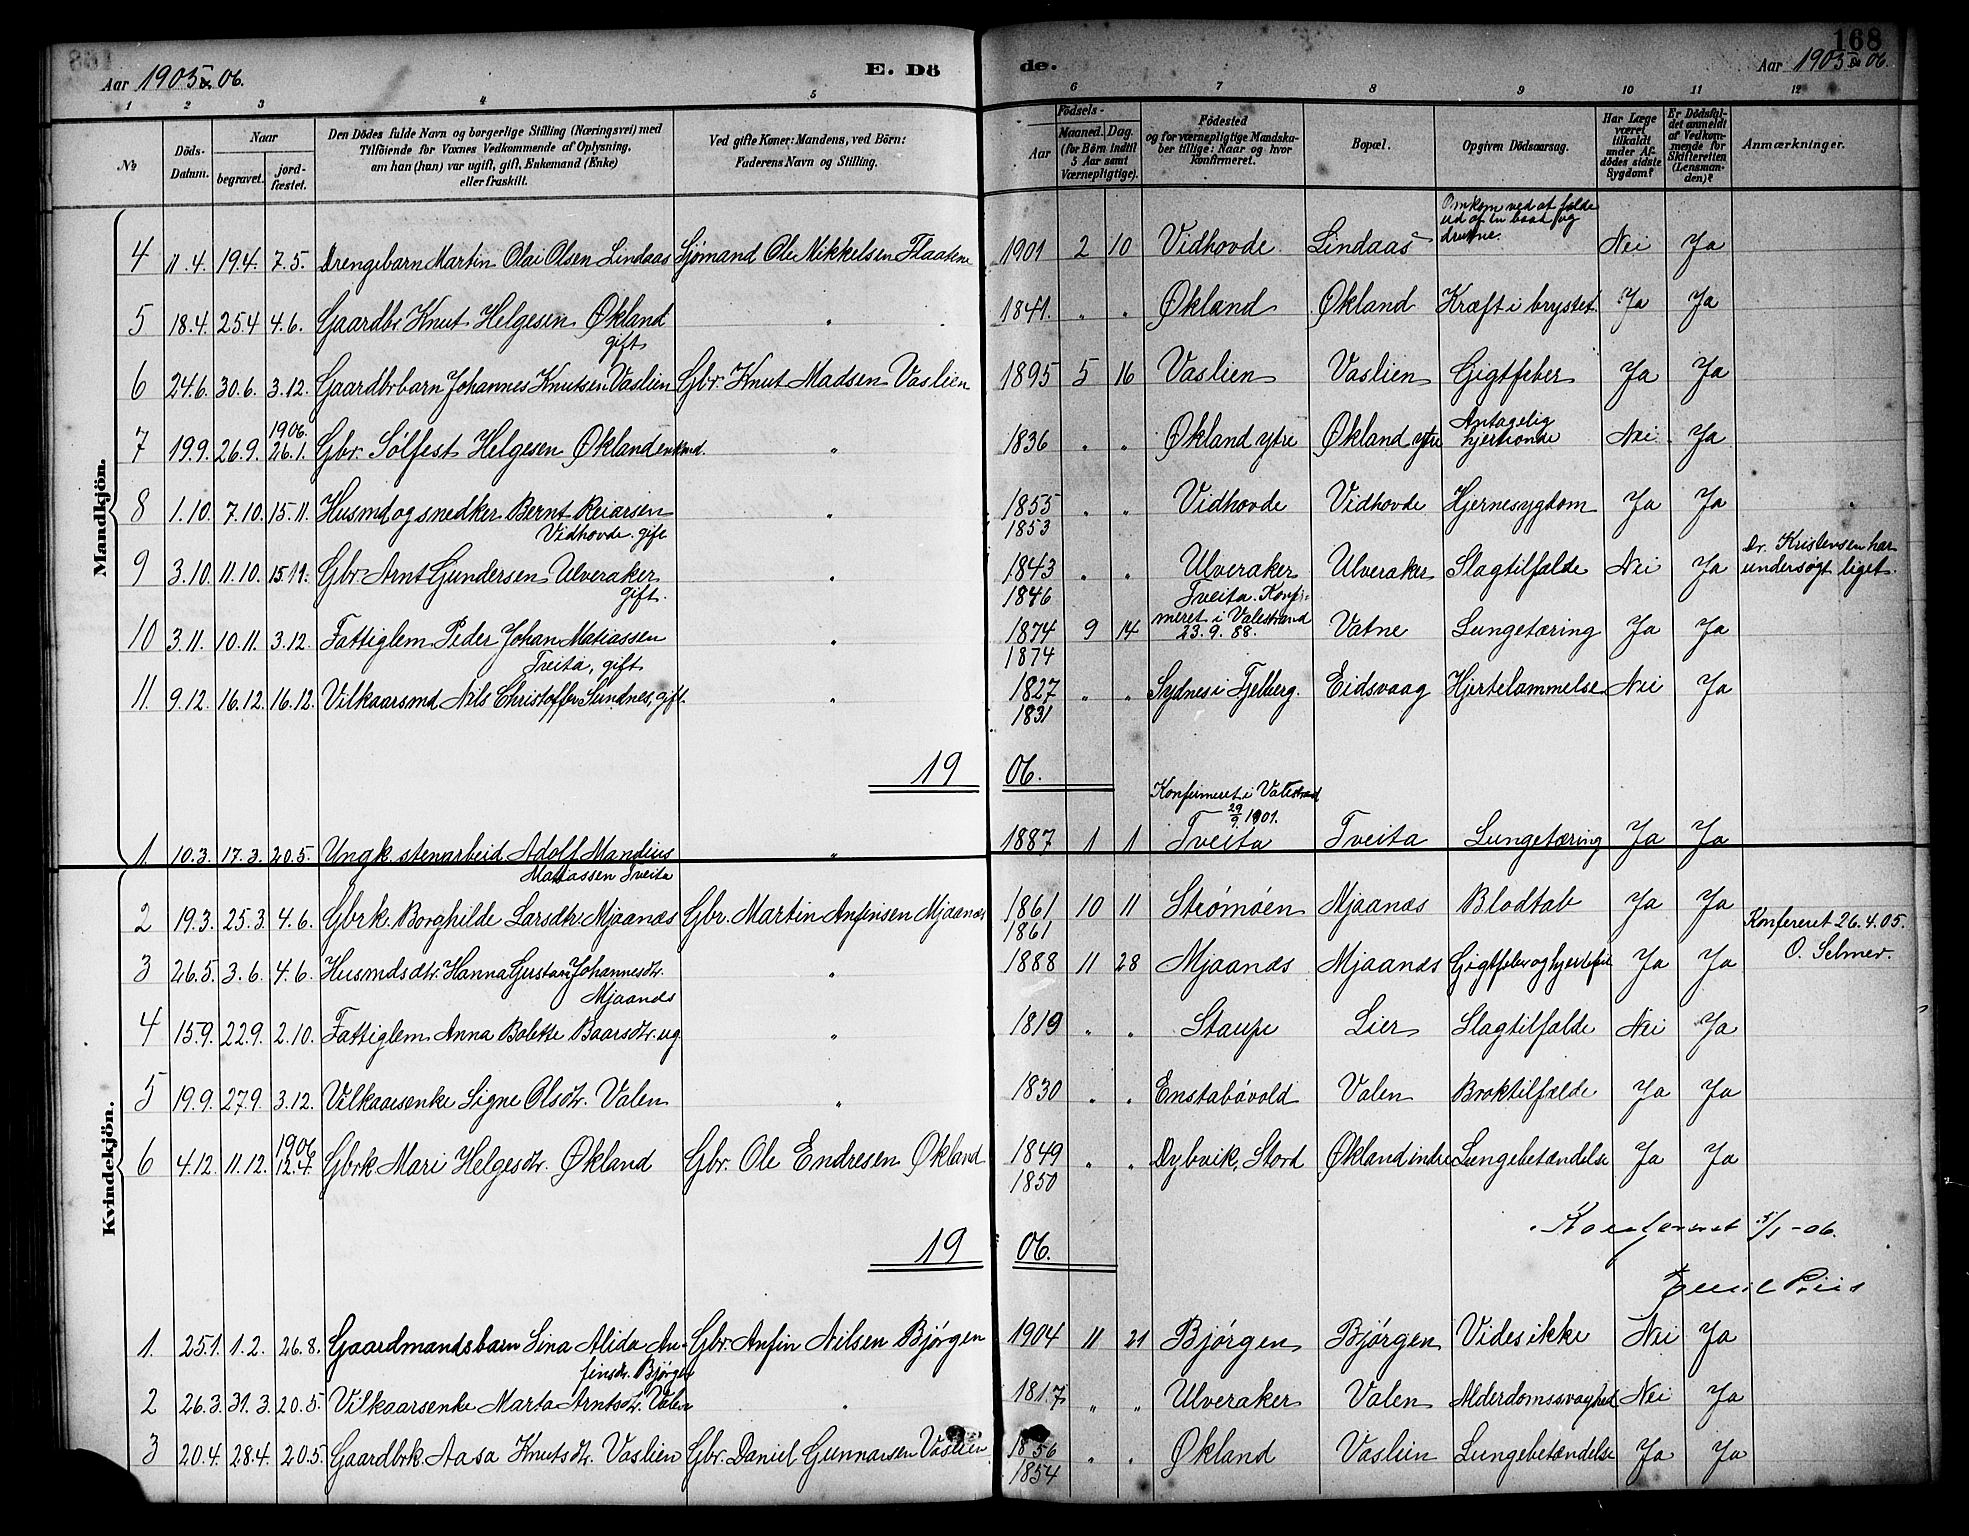 168
Aar 1905 & 06.
E. Dö
de.
Aar 1905 & 06.
1 2 3 4 5 6 7 8 9 10 11 12
No
Döds-Datum.
Naar
begravet.
jord-fæstet.
Den Dödes fulde Navn og borgerlige Stilling (Næringsvei) med
Tilföiende for Voxnes Vedkommende af Oplysning,
om han (hun) var ugift, gift, Enkemand (Enke)
eller fraskilt.
Ved gifte Koner: Mandens, ved Börn:
Faderens Navn og Stilling.
Födsels-
Aar
Maaned. Dag.
(for Börn indtil
5 Aar samt
Værnepligtige).
Födested
og for værnepligtige Mandska-
ber tillige: Naar og hvor
Konfirmeret.
Bopæl.
Opgiven Dödsaarsag.
Har Læge
været
tilkaldt
under Af-
dödes sidste
Sygdom?
Er Dödsfal-
det anmeldt
af Vedkom-
mende for
Skifteretten
(Lensman-
den)?
Anmærkninger.
Mandkjön.
4 11.4. 19.4. 7.5. Drengebarn Martin Olai Olsen Lindaas Sjömand Ole Mikkelsen Flaatene 1901 2 10 Vidhovde Lindaas Omkom ved at falde ud af en baad og drukne. Nei Ja
5 18.4. 25.4 4.6. Gaardbr. Knut Helgesen Økland gift " 1841. " " Økland Økland Kræft i brystet. Ja Ja
6 24.6. 30.6. 3.12. Gaardbrbarn Johannes Knutsen Vaslien Gbr. Knut Madsen Vaslien 1895 5 16 Vaslien Vaslien Gigtfeber Ja Ja
7 19.9. 26.9. 1906. 26.1. Gbr. Sølfest Helgesen Økland enkmd. " 1836 " " Økland ytre Økland ytre Antagelig hjerteonde Nei Ja
8 1.10. 7.10. 15.11. Husmd og snedker Bernt Reiarsen Vidhovde. gift " 1855 1853 " " Vidhovde Vidhovde Hjernesygdom Ja Ja
9 3.10. 11.10. 15.11. Gbr. Arnt Gundersen Ulveraker gift. " 1843 1846 " " Ulveraker Ulveraker Slagtilfælde Nei Ja Dr. Kristensen har undersøgt liget.
10 3.11. 10.11. 3.12. Fattiglem Peder Johan Matiassen Tveita, gift " 1874 1874 9 14 Tveita. Konfirmeret i Valestrand 23.9.88. Vatne Lungetæring Ja Ja
11 9.12. 16.12. 16.12. Vilkaarsmd Nils Christoffer Sundnes, gift. " 1827 1831 " " Sydnes i Fjelberg. Eidsvaag Hjertelammelse Nei Ja
19 06.
1. 10.3. 17.3. 20.5. Ungk. stenarbeid. Adolf Mandius Matiassen Tveita " 1887 1 1 Konfirmeret i Valestrand 29/9. 1901. Tveita Tveita Lungetæring Ja Ja
Kvindekjön.
2 19.3. 25.3. 4.6. Gbrk. Borghilde Larsdtr. Mjaanes Gbr. Martin Anfinsen Mjaanes 1861 1861 10 11 Strømøen Mjaanes Blodtab Ja Ja Konfereret 26.4.05. O. Selmer.
3 26.5. 3.6. 4.6. Husmdsdtr. Hanna Gurstava Johannesdtr. Mjaanes " 1888 11 28 Mjaanes Mjaanes Gigtfeber og hjertefeil Ja Ja
4 15.9. 22.9. 2.10. Fattiglem Anna Bolette Baarsdtr. ug. " 1819 " " Staupe Lier Slagtilfælde Nei Ja
5 19.9. 27.9. 3.12. Vilkaarsenke Signe Olsdtr. Valen " 1830 " " Enstabövold Valen Broktilfælde Ja Ja
6 4.12. 11.12. 1906 12.4. Gbrk Mari Helgesdtr. Økland Gbr. Ole Endresen Økland 1849 1850 " " Dybvik, Stord Økland indre Lungebetændelse Ja Ja
Konfereret 5/1-06.
19 06.
Emil Riis
1. 25.1. 1.2. 26.8. Gaardmandsbarn Sina Alida Anfinsdr. Bjørgen Gbr. Anfin Nilsen Bjørgen 1904 11 21 Bjørgen Bjørgen Vides ikke Nei Ja
2 26.3. 31.3. 20.5. Vilkaarsenke Marta Arntsdtr. Valen " 1817 " " Ulveraker Valen Alderdomssvaghed Nei Ja
3 20.4. 28.4. 20.5 Gaardbrk. Aasa Knutsdtr. Vaslien Gbr. Daniel Gunnarsen Vaslien 1856 1854 " " Økland Vaslien Lungebetændelse Ja Ja